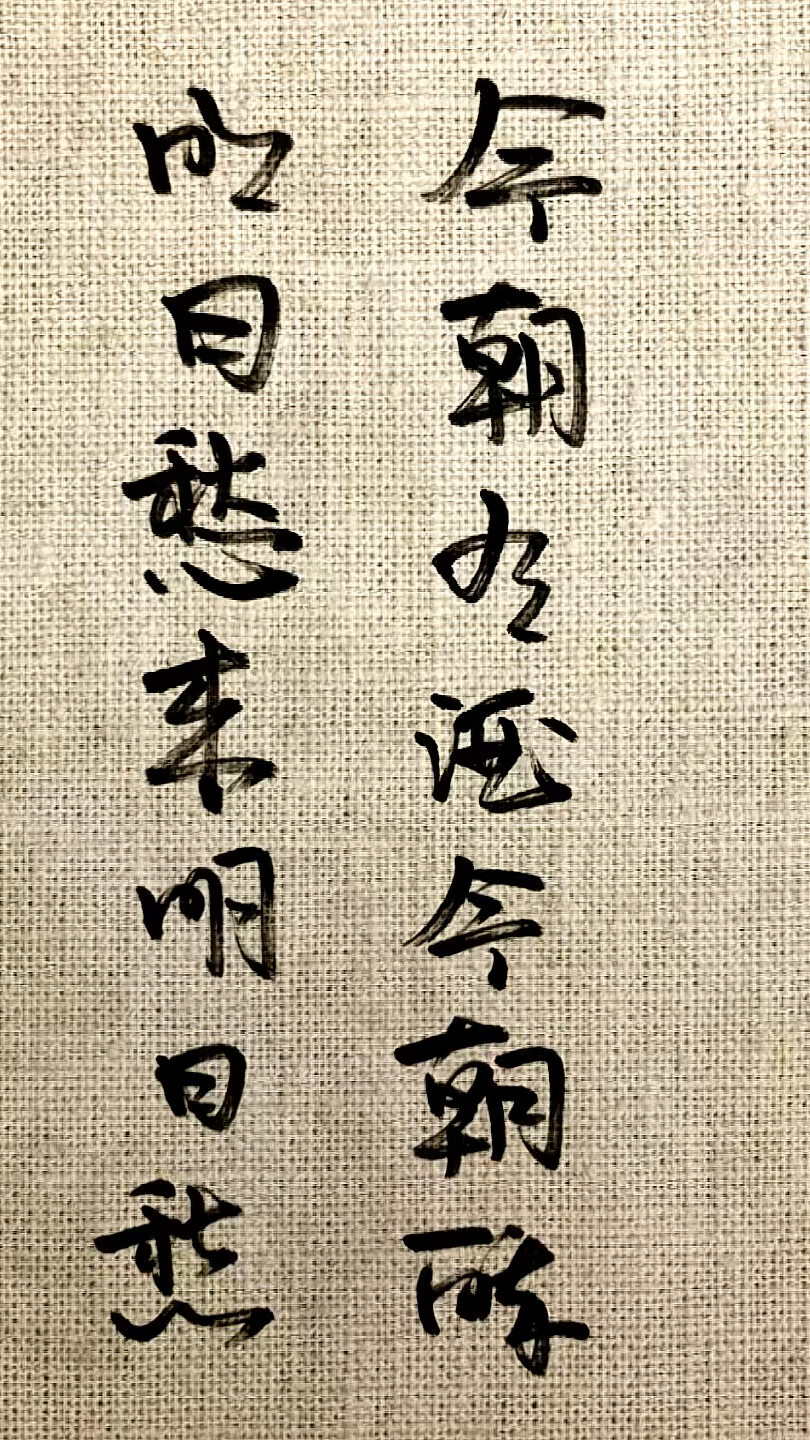 今朝有酒今朝醉
明日愁来明日愁